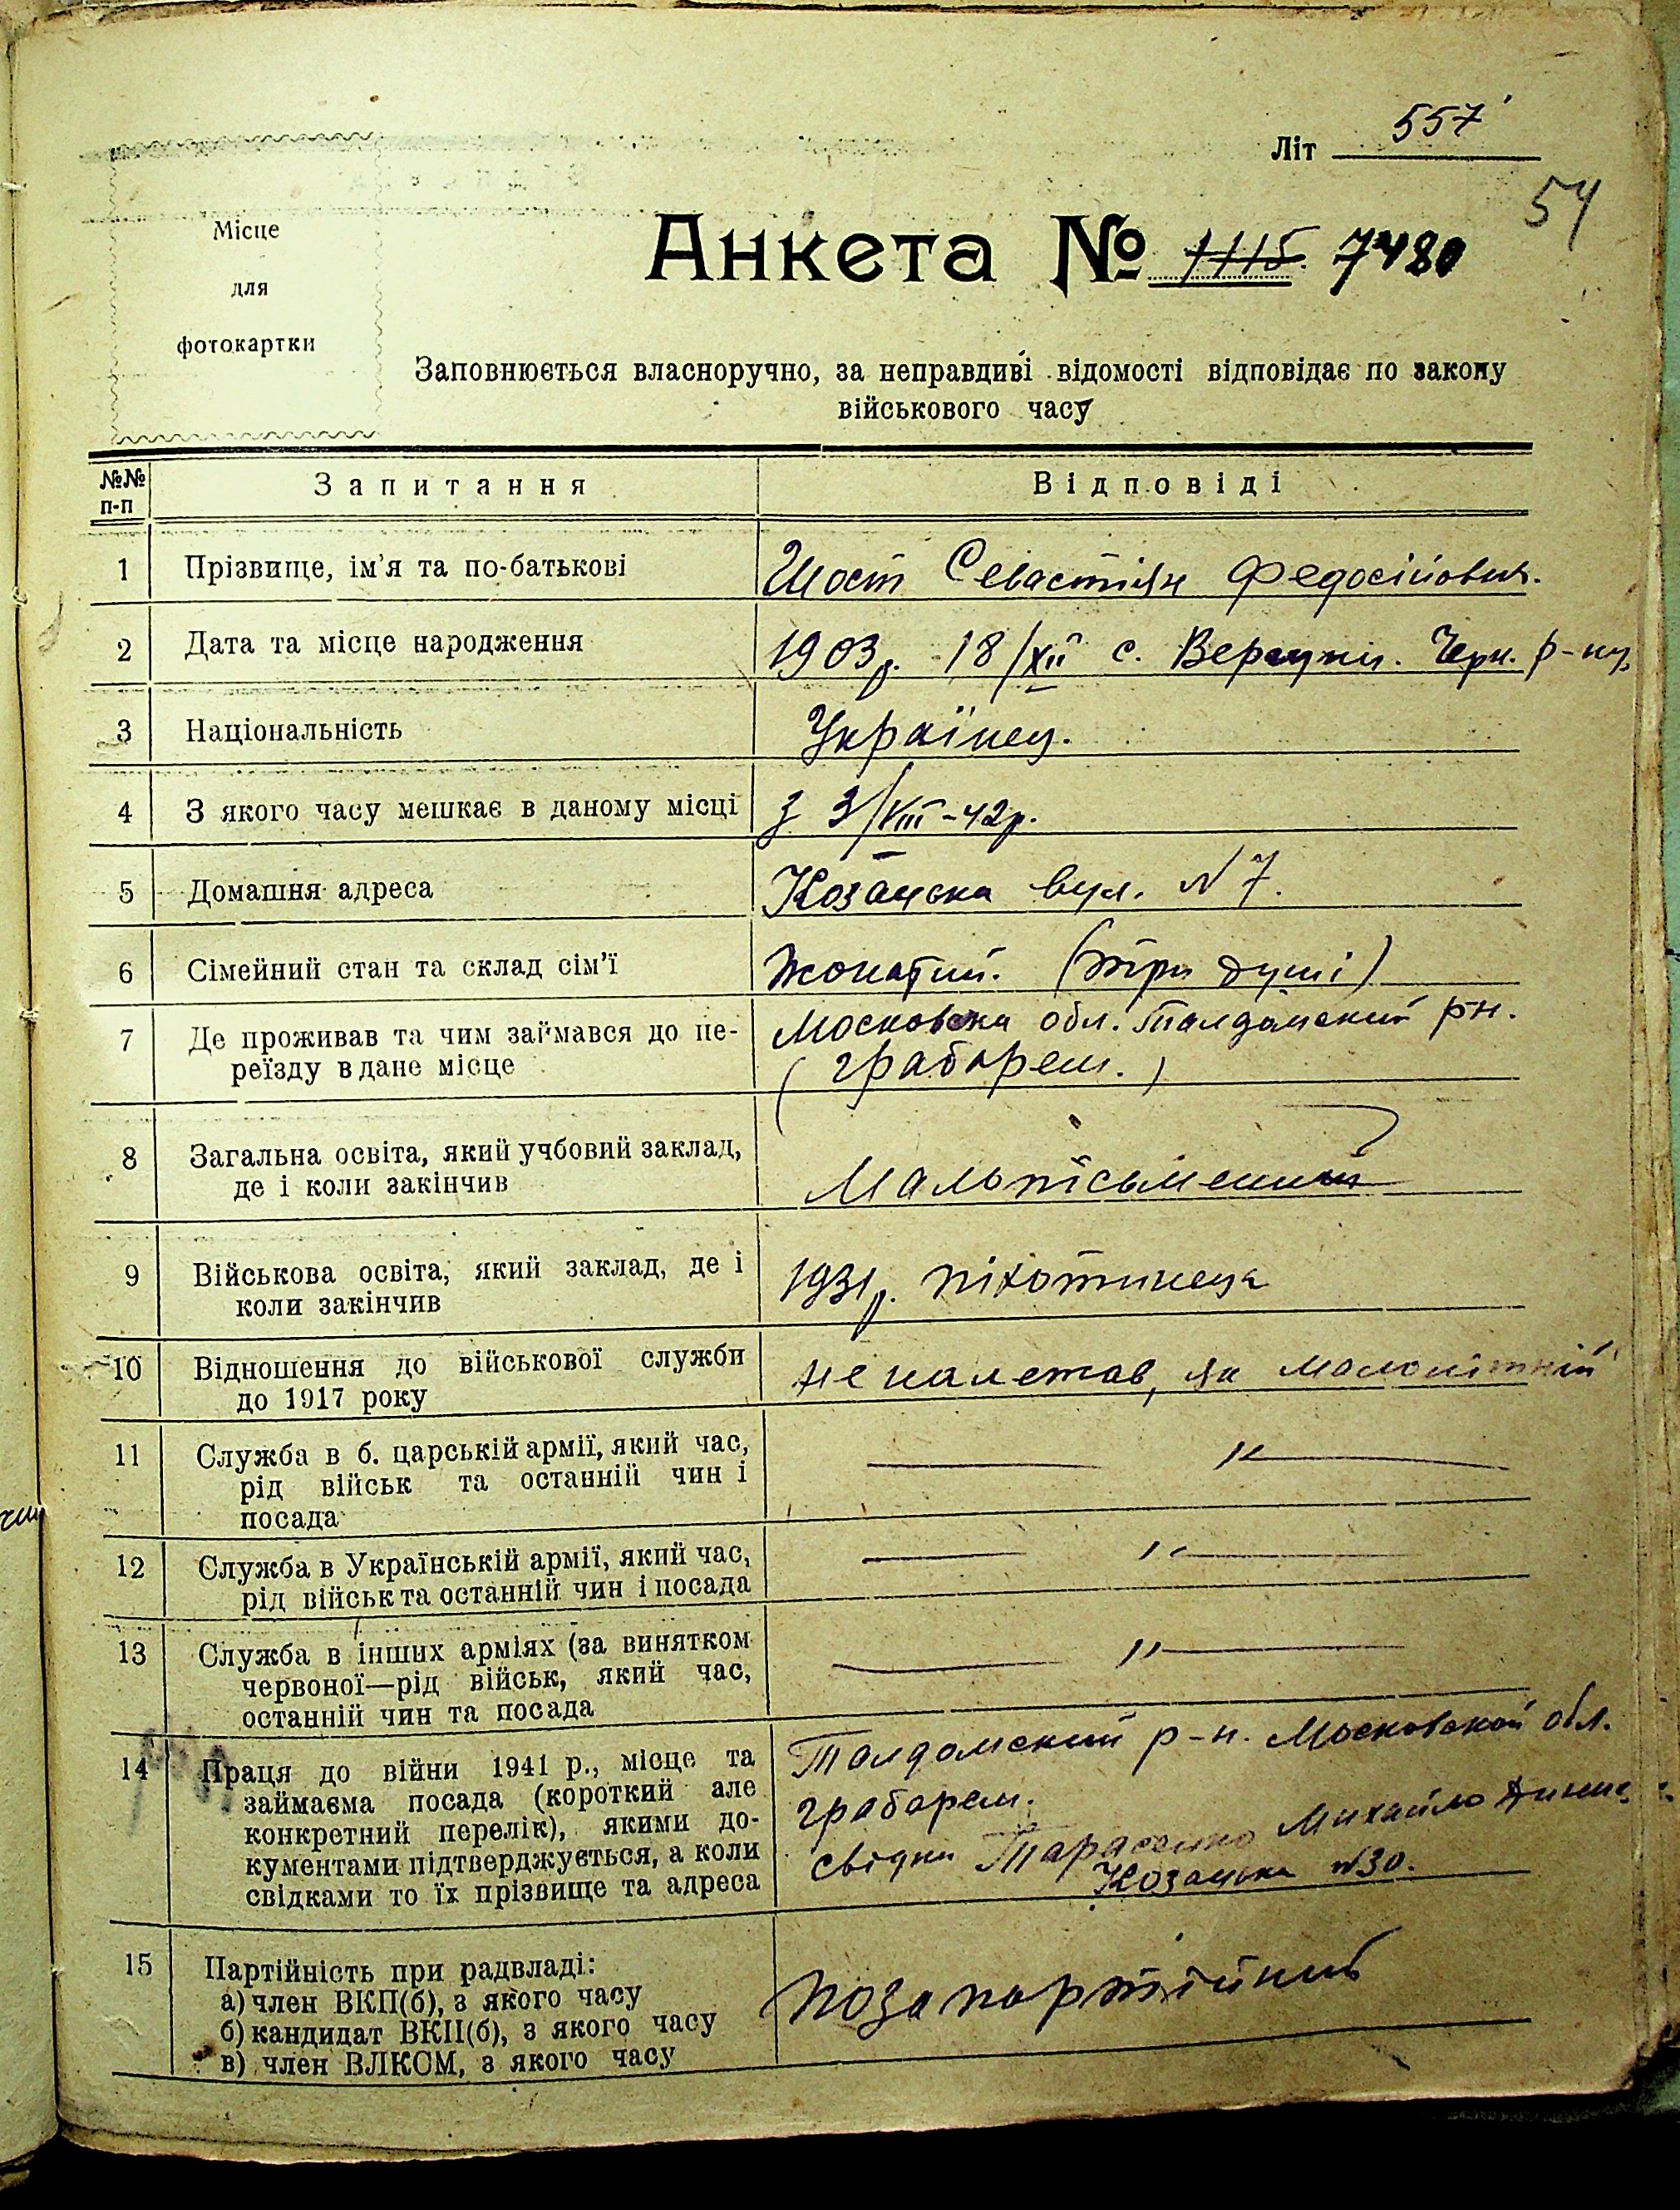 Літ 557
54
Місце
для
фотокартки
Анкета № 1115. 7480
Заповнюється власноручно, за неправдиві відомості відповідає по закону
військового часу
№№ п-п
Запитання
Відповіді
1
Прізвище, ім'я та по-батькові
Шост Севастіян Федосійович.
2
Дата та місце народження
1903р. 18/XII с. Черн. р-ну,
3
Національність
Українець.
4
З якого часу мешкає в даному місці
З 3/VIII-42р.
5
Домашня адреса
Козацька вул. N 7.
6
Сімейний стан та склад сім'ї
Жонатий. (три душі)
7
Де проживав та чим займався до пе-
реїзду в дане місце
Московска обл. Талдомский р-н.
(грабарем.)
8
Загальна освіта, який учбовий заклад,
де і коли закінчив
Малопісьменний
9
Військова освіта, який заклад, де і
коли закінчив
1931р. піхотинець
10
Відношення до військової служби
до 1917 року
не належав, як малолітній
11
Служба в б. царській армії, який час,
рід військ та останній чин і
посада
— " —
12
Служба в Українській армії, який час,
рід військ та останній чин і посада
— " —
13
Служба в інших арміях (за винятком
червоної—рід військ, який час,
останній чин та посада
— " —
14
Праця до війни 1941 р., місце та
займаєма посада (короткий але
конкретний перелік), якими до-
кументами підтверджується, а коли
свідками то їх прізвище та адреса
Талдомский р-н. Московской обл.
грабарем.
свідки Тарасенко Михайло
Козацька N30.
15
Партійність при радвладі:
а) член ВКП(б), з якого часу
б) кандидат ВКП(б), з якого часу
в) член ВЛКСМ, з якого часу
позапартійний